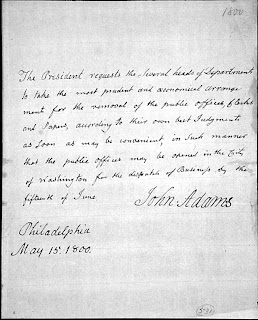 1800
The President requests the several heads of Departments
to take the most prudent and œconomical arrange
ment for the removal of the public offices, Clerks
and Papers, according to their own best Judgments
as soon as may be convenient, in such manner
that the public offices may be opened in the City
of Washington for the dispatch of Business by the
fifteenth of June
John Adams
Philadelphia
May 15. 1800.